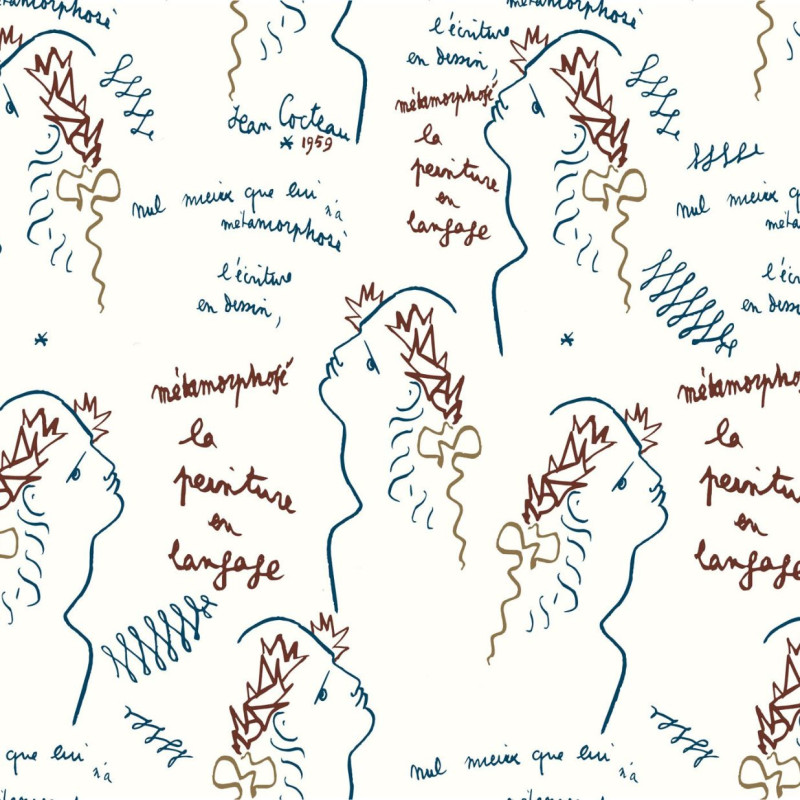 métamorphosé
Jean Cocteau
* 1959
nul mieux que lui
n'a
métamorphosé
l'écriture
en dessin,
métamorphosé
la
peinture
en
langage
métamorphosé
l'écriture
en dessin,
métamorphosé
la
peinture
en
langage
nul mieux q
méta
l'éc
en dess
métamorpho
la
peintu
en
langage
que lui
n'a
nul mieux que lui
n'a